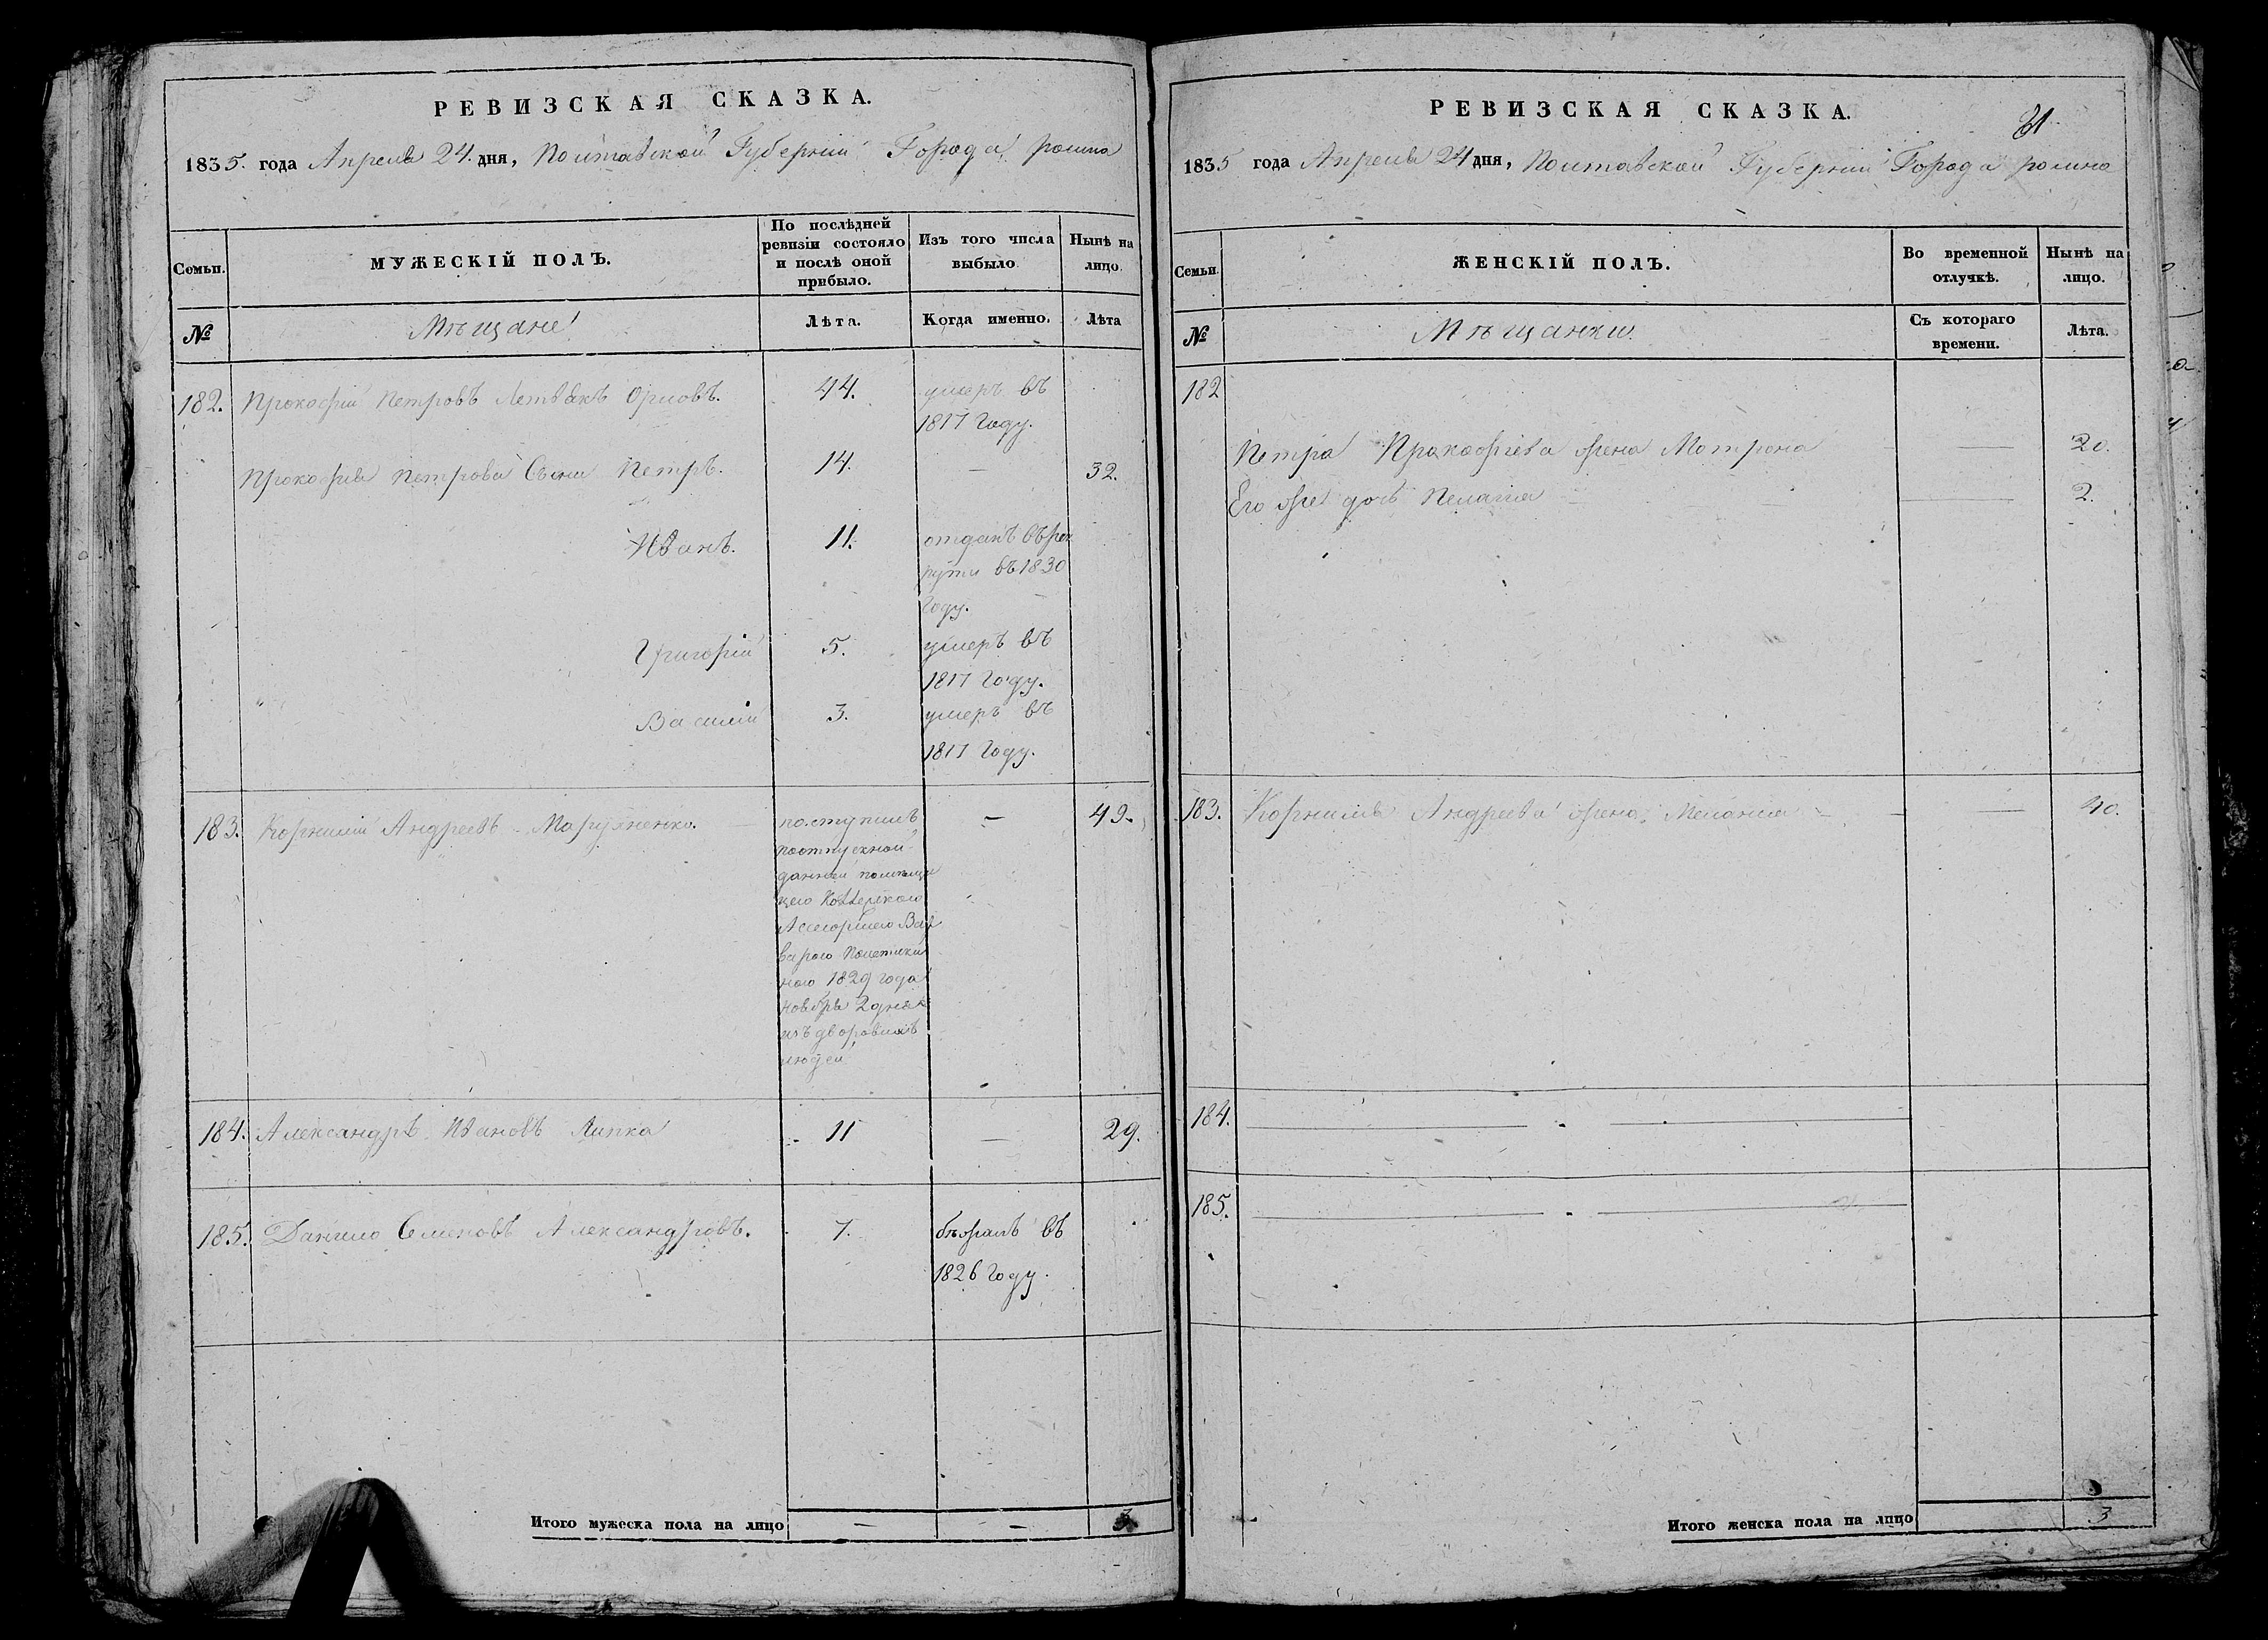 РЕВИЗСКАЯ СКАЗКА.
1835. года Апреля 24. дня, Полтавской Губернии Города ромна
Семьи.
МУЖЕСКІЙ ПОЛЪ.
По послѣдней
ревизіи состояло
и послѣ оной
прибыло.
Изъ того числа
выбыло
Нынѣ на
лицо.
№
Мѣщане
Лѣта.
Когда именно.
Лѣта
182. Прокофій Петровъ Орловъ. 44. умеръ въ
1817 году.
Прокофія Петрова Сыни Петръ. 14. — 32.
Иванъ. 11. отданъ въ рек
руты въ 1830
году.
Григорій 5. умеръ въ
1817 году.
Василій 3. умеръ въ
1817 году.
183. Корнилій Андреевъ поступилъ — 49.
данной
Ассесоршею Вар
варою
1829 года
ноября 2 дня
изъ дворовыхъ
людей
184. Александръ Ивановъ Липка 11 — 29.
185. Данило Семеновъ Александровъ. 7. бѣжалъ въ
1826 году.
Итого мужеска пола на лицо — — 3
РЕВИЗСКАЯ СКАЗКА.
1835 года Апреля 24 дня, Полтавской Губернии Города ромна
Семьи.
ЖЕНСКІЙ ПОЛЪ.
Во временной
отлучкѣ.
Нынѣ на
лицо.
№
Мѣщанки.
Съ котораго
времени.
Лѣта.
182
Петра Прокофіева жена Мотрона — 20.
Его же дочь Пелагия — 2.
183. Корнилія Андреева жена Мелания — 40.
184.
185.
Итого женска пола на лицо 3